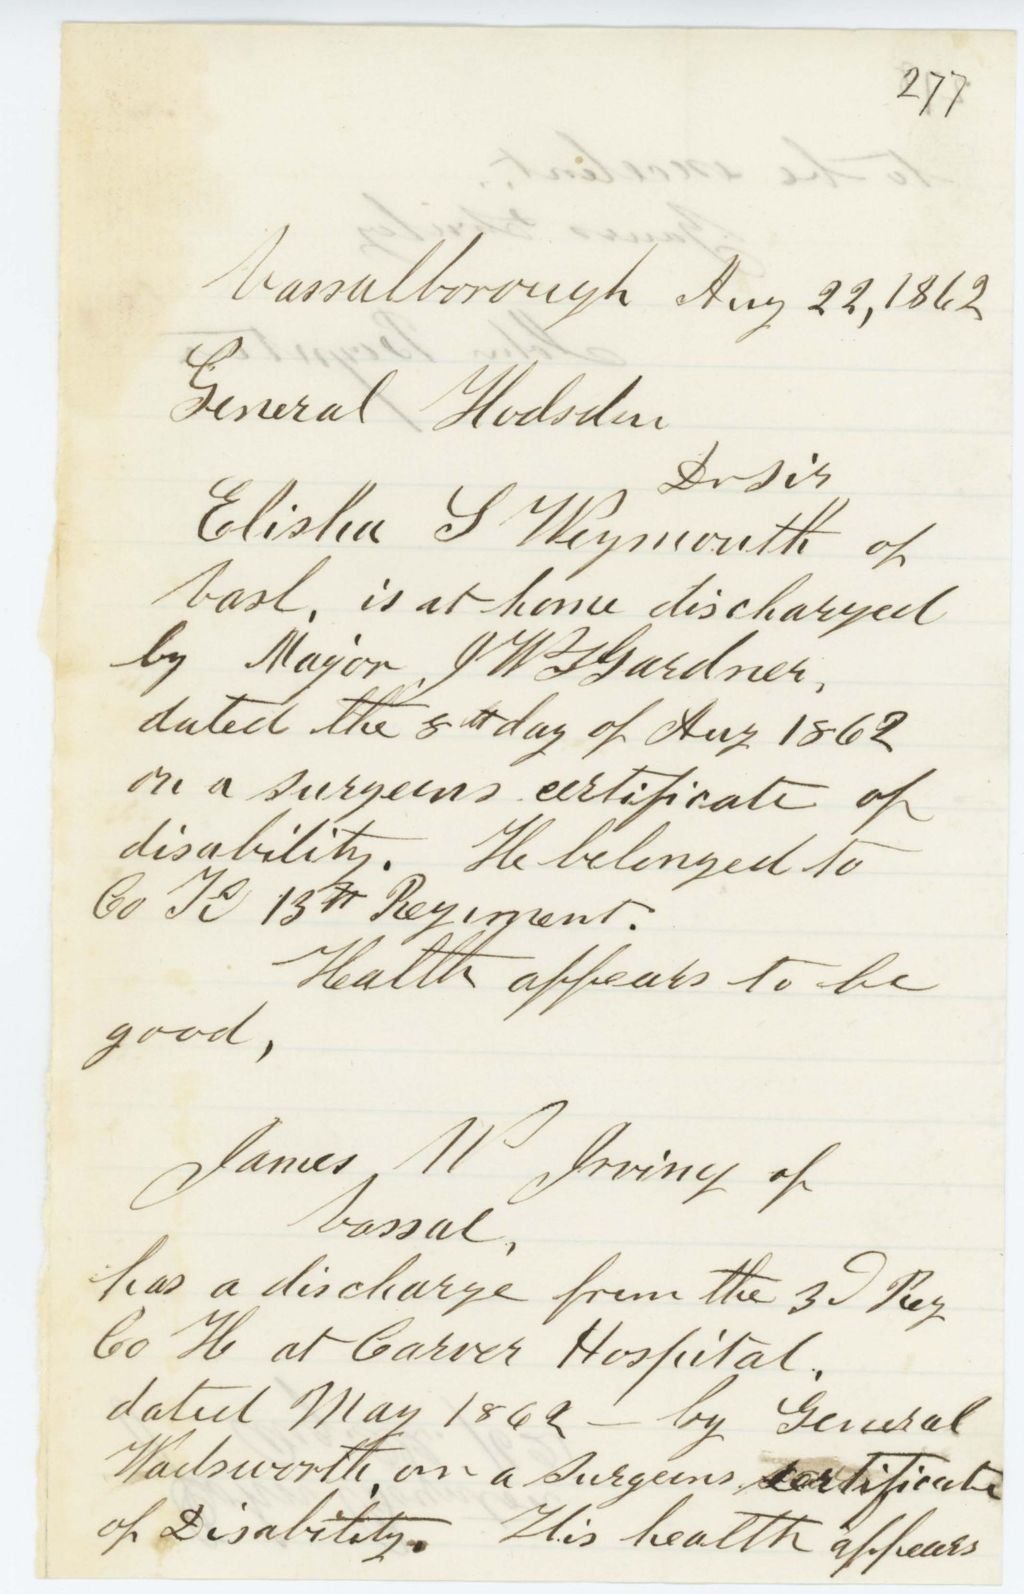 277
Vassalborough Aug 22, 1862
General Hodsdon
Dr Sir
Elisha S Weymouth of
Vasl. is at home discharged
by Major J W T Gardner,
dated the 8th day of Aug 1862
on a surgeons certificate of
disability. He belonged to
Co K 13th Regiment.
Health appears to be
good,
James W Irving of
Vassal,
has a discharge from the 3d Reg
Co H at Carver Hospital,
dated May 1862 — by General
Wadsworth, on a surgeons certificate
of Disability. His health appears